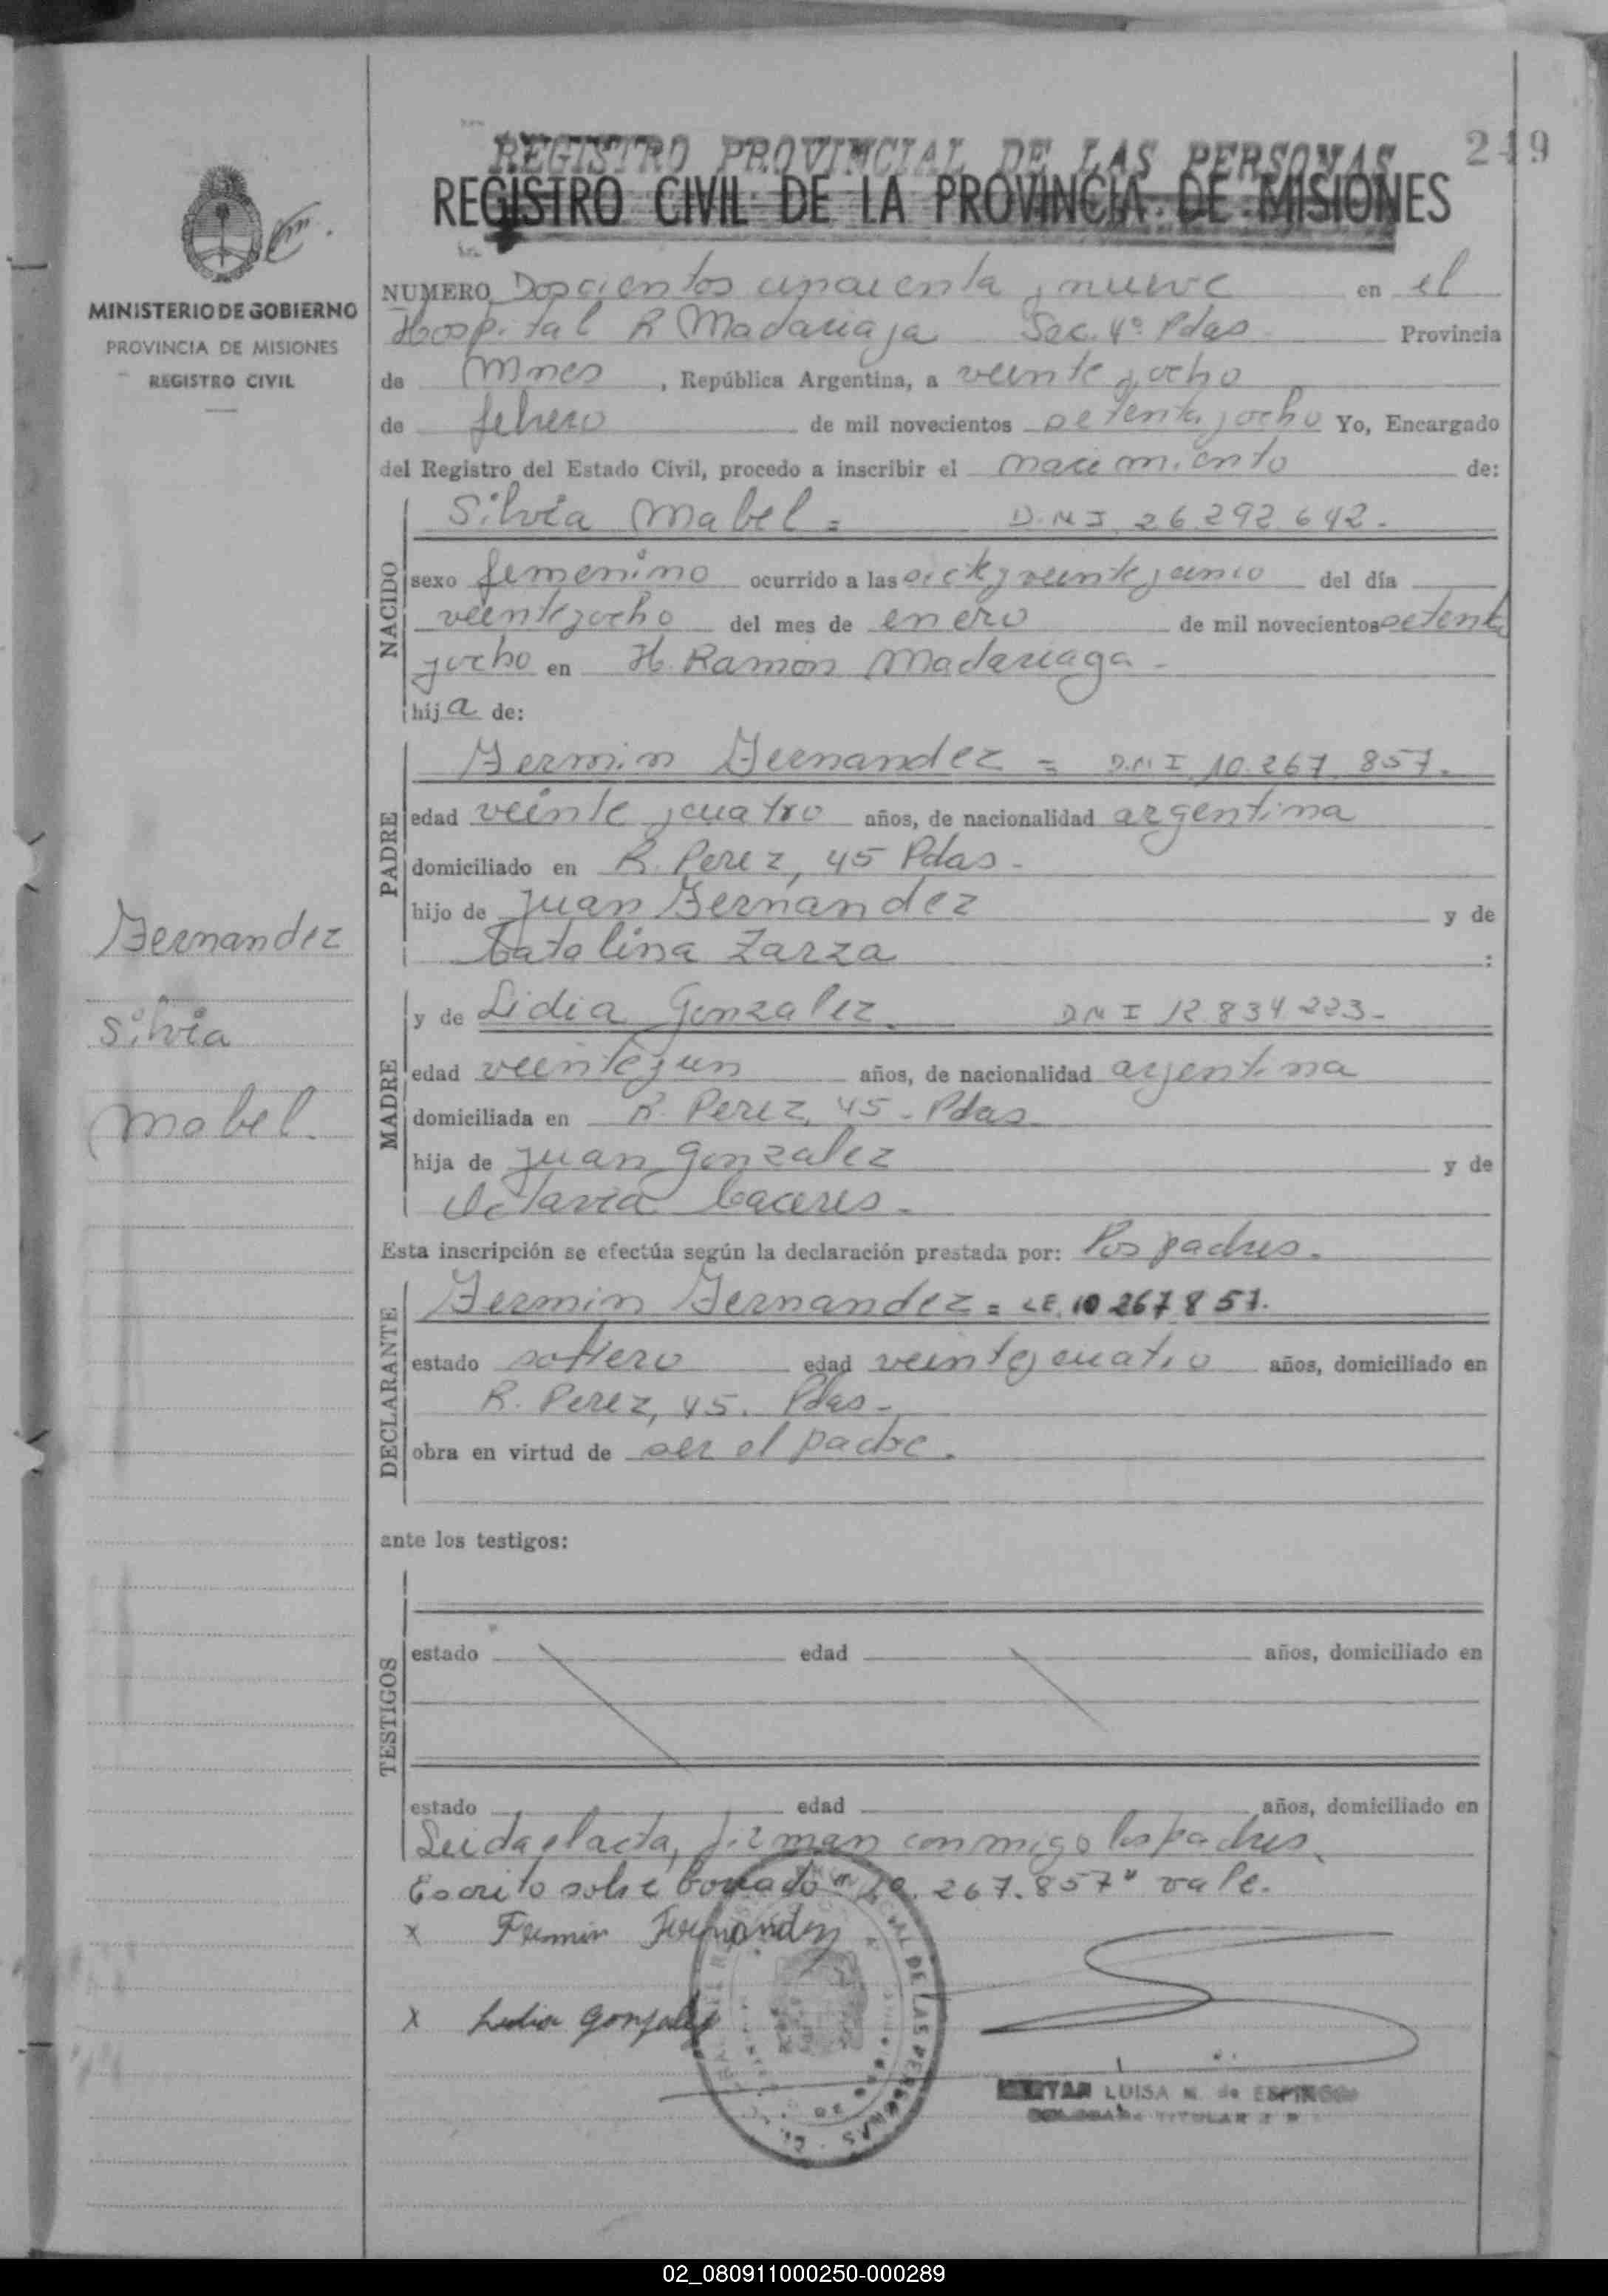 249
REGISTRO PROVINCIAL DE LAS PERSONAS
REGISTRO CIVIL DE LA PROVINCIA DE MISIONES
MINISTERIO DE GOBIERNO
PROVINCIA DE MISIONES
REGISTRO CIVIL
NUMERO Doscientos cuarenta y nueve en el
Hospital R Madariaga Sec. 4ª Pdas Provincia
de Mnes, República Argentina, a veinte y ocho
de febrero de mil novecientos setenta y ocho Yo, Encargado
del Registro del Estado Civil, procedo a inscribir el nacimiento de:
NACIDO
Silvia Mabel = D.N.I. 26.292.642.-
sexo femenino ocurrido a las siete y veinte y cinco del día
veinte y ocho del mes de enero de mil novecientos setenta
y ocho en H. Ramón Madariaga -
hija de:
PADRE
Fermin Fernandez = D.N.I. 10.267.857.-
edad veinte y cuatro años, de nacionalidad argentina
domiciliado en R. Perez, 45 Pdas -
hijo de Juan Fernandez y de
Catalina Zarza :
MADRE
y de Lidia Gonzalez D N I 12.834.223-
edad veinte y un años, de nacionalidad argentina
domiciliada en R. Perez, 45 - Pdas
hija de Juan Gonzalez y de
Octavia Caceres -
Esta inscripción se efectúa según la declaración prestada por: los padres.
DECLARANTE
Fermin Fernandez = LE. 10.267.857.
estado soltero edad veinte y cuatro años, domiciliado en
R. Perez, 45. Pdas -
obra en virtud de ser el padre.
ante los testigos:
TESTIGOS
estado edad años, domiciliado en
estado edad años, domiciliado en
Leida el acta, firman conmigo los padres.
Escrito sobre borrado "10.267.857" vale.
x Fermin Fernandez
x Lidia Gonzalez
LUISA N. de
TITULAR
Fernandez
Silvia
Mabel.
02_080911000250-000289